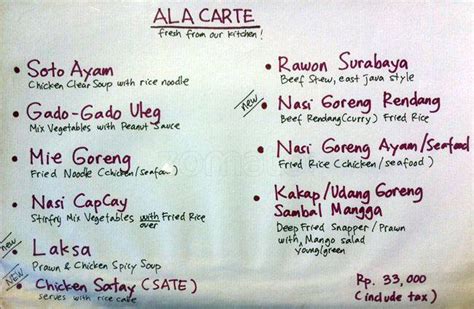 ALA CARTE
fresh from our kitchen!
• Soto Ayam
Chicken Clear Soup with rice noodle
• Gado-Gado Uleg
Mix Vegetables with Peanut Sauce
• Mie Goreng
Fried Noodle (chicken/seafood)
• Nasi CapCay
Stirfry Mix Vegetables with Fried Rice
over
new
• Laksa
Prawn & Chicken Spicy Soup
NEW
• Chicken Satay (SATE)
serves with rice cake
• Rawon Surabaya
Beef Stew, east java style
new
• Nasi Goreng Rendang
Beef Rendang (curry) Fried Rice
• Nasi Goreng Ayam/Seafood
Fried Rice (chicken/seafood)
• Kakap/Udang Goreng
Sambal Mangga
Deep Fried Snapper / Prawn
with Mango salad
young/green
Rp. 33,000
(include tax)